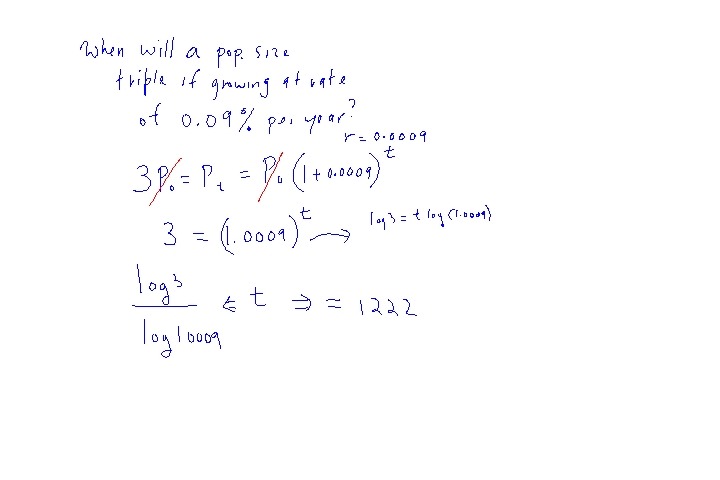 When will a pop. size
triple if growing at rate
of 0.09% per year?
r = 0.0009
3P₀ = Pₜ = P₀ (1 + 0.0009)^t
3 = (1.0009)^t → log 3 = t log (1.0009)
log 3 / log 1.0009 = t ⇒ ≈ 1222